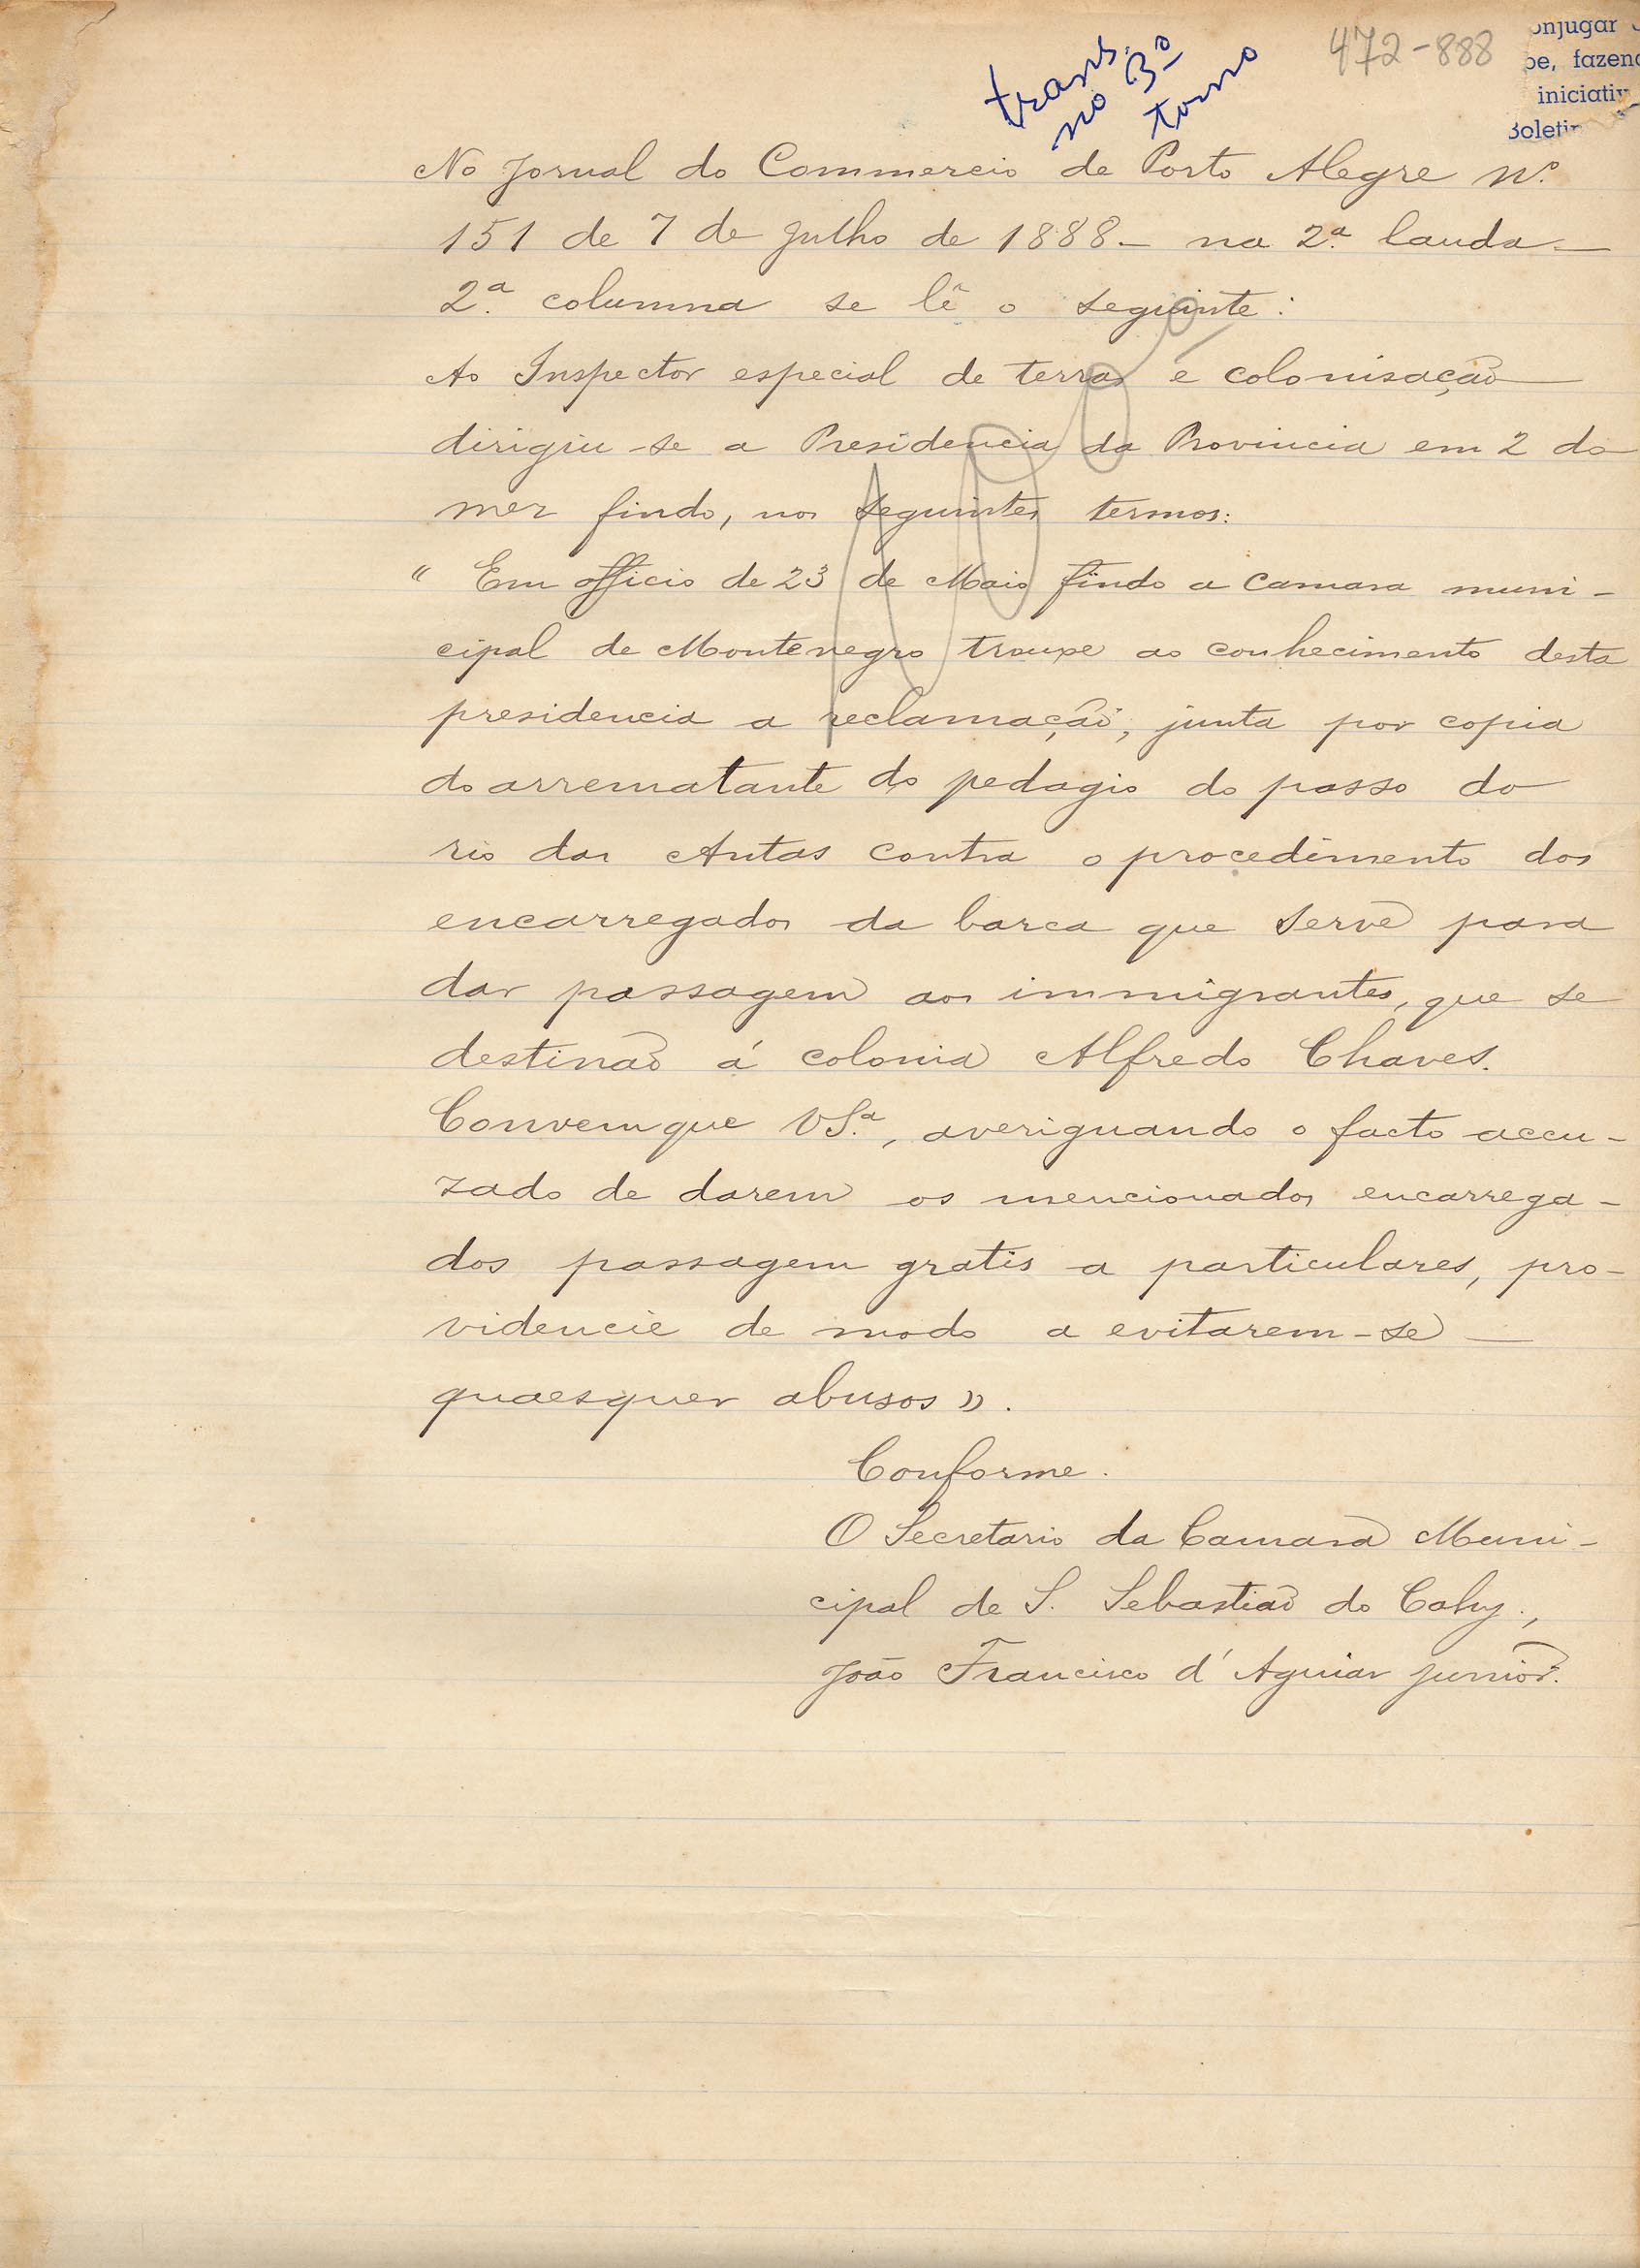 trans.
no 3º
tomo
472-888
onjugar
pe, fazend
iniciativ
Boletin
No Jornal do Commercio de Porto Alegre nº
151 de 7 de Julho de 1888 - na 2ª lauda -
2ª columna se lê o seguinte:
Ao Inspector especial de terras e colonisação
dirigiu-se a Presidencia da Provincia em 2 do
mez findo, nos seguintes termos:
" Em officio de 23 de Maio findo a camara muni-
cipal de Montenegro trouxe ao conhecimento desta
presidencia a reclamação, junta por copia
do arrematante do pedagio do passo do
rio das Antas contra o procedimento dos
encarregados da barca que serve para
dar passagem aos immigrantes, que se
destinão á colonia Alfredo Chaves.
Convem que VSª, averiguando o facto accu-
zado de darem os mencionados encarrega-
dos passagem gratis a particulares, pro-
videncie de modo a evitarem-se
quaesquer abusos ».
Conforme.
O Secretario da Camara Muni-
cipal de S. Sebastião do Cahy,
João Francisco d'Aguiar Junior.